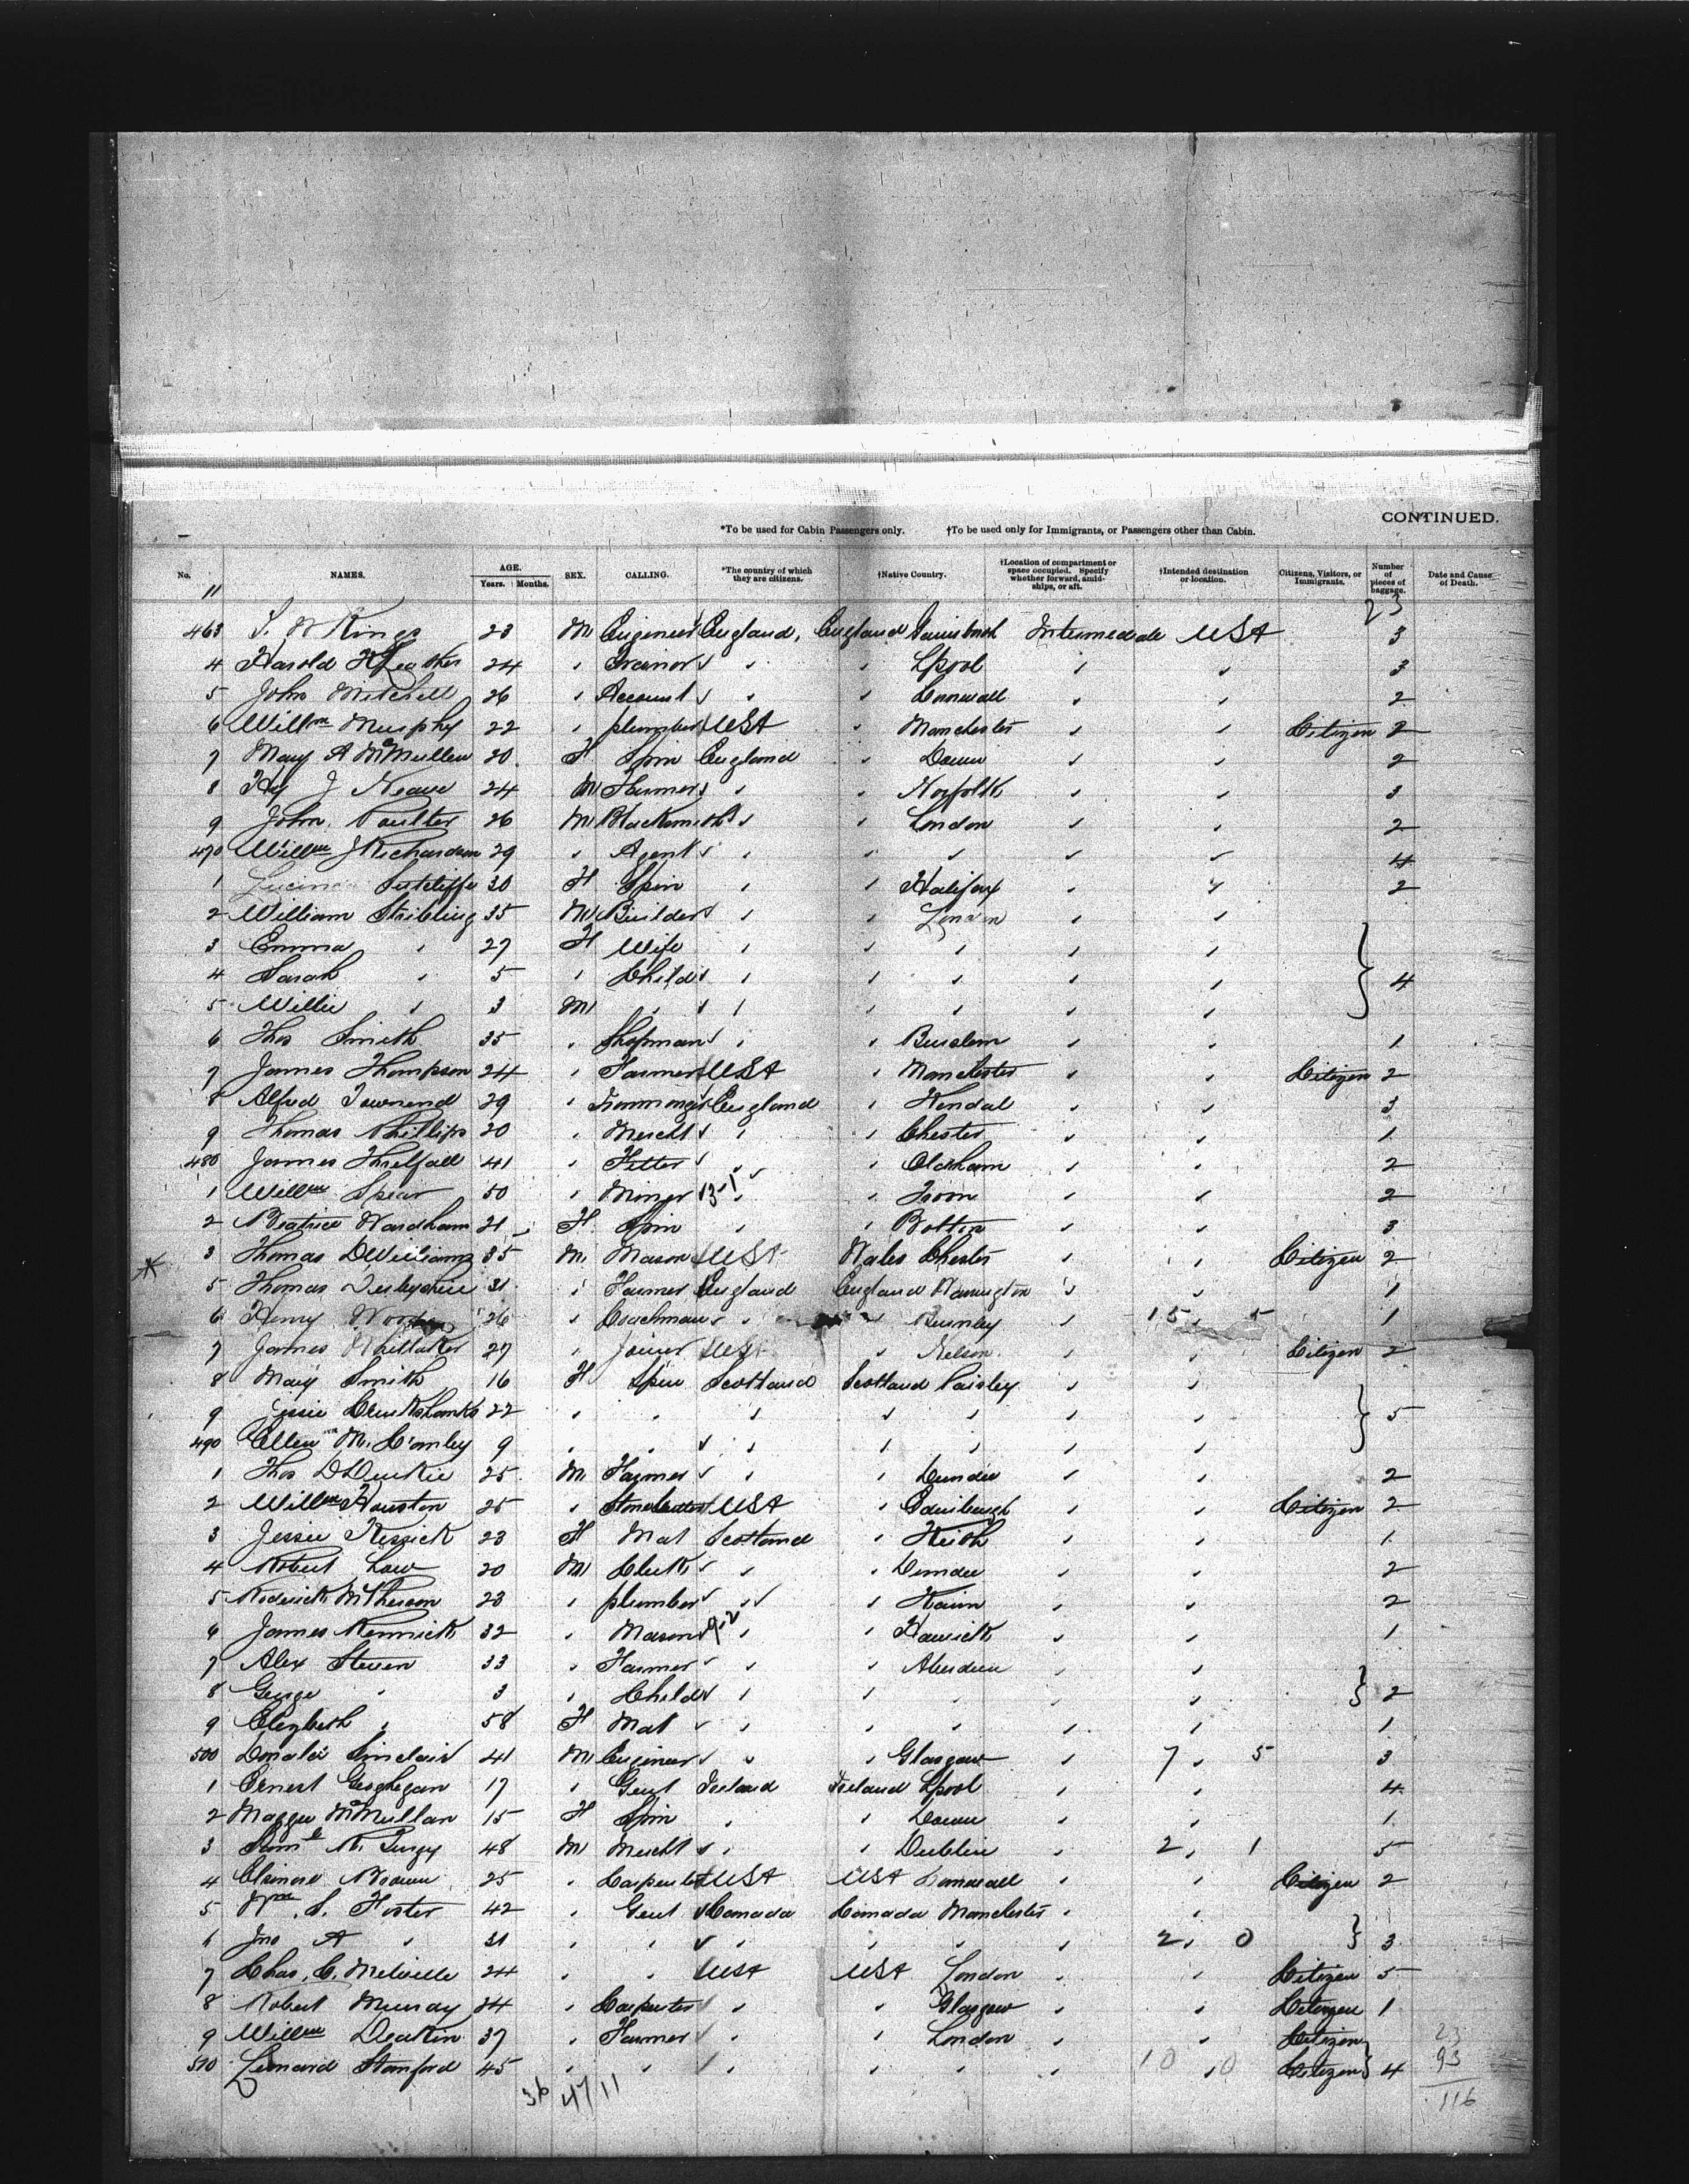 CONTINUED.
*To be used for Cabin Passengers only. †To be used only for Immigrants, or Passengers other than Cabin.
No. NAMES. AGE. Years. Months. SEX. CALLING. *The country of which they are citizens. †Native Country. †Location of compartment or space occupied. Specify whether forward, amidships, or aft. †Intended destination or location. Citizens, Visitors, or Immigrants. Number of pieces of baggage. Date and Cause of Death.
11
463 King 23 M Engineer England, England Intermediate USA 3
4 Harold 24 " " " Lpool " " 3
5 John Mitchell 26 " Account " " " Cornwall " " 2
6 Willm Murphy 22 " plumber USA " Manchester " " Citizen 2
7 Mary A McMullen 20 F Spin England " Down " " 2
8 Hy J 24 M Farmer " " Norfolk " " 3
9 John Poulter 26 M Blacksmith " " London " " 2
470 Willm J Richardson 29 " Agent " " " " " 4
1 Sutcliffe 30 F Spin " " Halifax " " 2
2 William Stribling 35 M Builder " " London " "
3 Emma " 27 F Wife " " " " "
4 Sarah " 5 " Child " " " " " 4
5 Willie " 3 M " " " " " "
6 Thos Smith 35 " Shopman " " Burslem " " 1
7 James Thompson 24 " Farmer USA " Manchester " " Citizen 2
8 Alfred Townend 29 " Ironmonger England " Kendal " " 3
9 Thomas Phillips 20 " Mercht " " Chester " " 1
480 James Threlfall 41 " Fitter " " Oldham " " 2
1 Willm Spear 50 " Miner 13-1 " " " " 2
2 Beatrice Wardham 21 F Spin " " Bolton " " 3
* 3 Thomas D Williams 35 M Mason USA Wales Chester " " Citizen 2
5 Thomas Derbyshire 31 " Farmer England England Warrington " " 1
6 Henry 26 " Coachman " " Burnley " 15 " 5 1
7 James Whittaker 27 " Joiner USA " Nelson " " Citizen 2
8 Mary Smith 16 F Spin Scotland Scotland Paisley " "
9 Jessie Cruikshanks 22 " " " " " " " 5
490 Ellen M. 9 " " " " " " "
1 Thos D Durkie 25 M Farmer " " Dundee " " 2
2 Willm Houston 25 " Stonecutter USA " Edinburgh " " Citizen 2
3 Jessie 23 F Mat Scotland " Keith " " 1
4 Robert Law 20 M Clerk " " Dundee " " 2
5 Roderick McPherson 23 " plumber " " Nairn " " 2
6 James Rennick 32 " Mason 9-2 " " Hawick " " 1
7 Alex Steven 33 " Farmer " " Aberdeen " "
8 George " 3 " Child " " " " " 2
9 Elizabeth " 58 F Mat " " " " " 1
500 Donald Sinclair 41 M Engineer " " Glasgow " 7 " 5 3
1 Ernest Geoghegan 17 " Gent Ireland Ireland Lpool " " 4
2 Maggie McMullan 15 F Spin " " Down " " 1
3 Saml 48 M Mercht " " Dublin " 2 " 1 5
4 Brown 25 " Carpenter USA USA Cornwall " " Citizen 2
5 Wm. S. Foster 42 " Gent Canada Canada Manchester " "
6 Jno A " 31 " " " " " " 2 " 0 3
7 Chas. C. Melville 24 " " USA USA London " " Citizen 5
8 Robert Murray 24 " Carpenter " " Glasgow " " Citizen 1
9 Willm Deakin 37 " Farmer " " London " " Citizen
510 Leonard Stanford 45 " " " " " " 10 " 0 Citizen 4
36 47 11
23
93
116